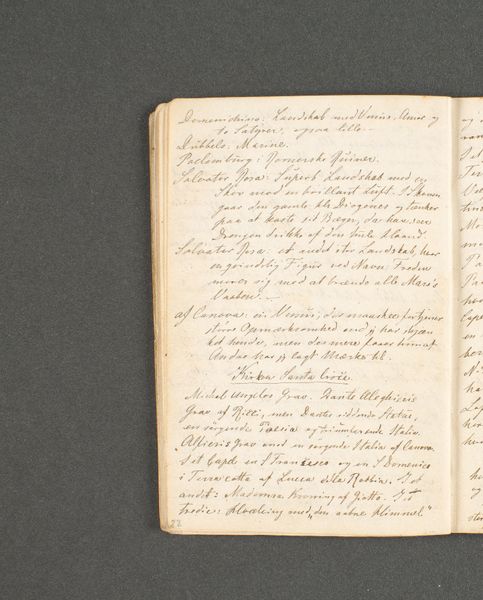 Domenichino: Landskab med Venus, Amor og
to Satyrer, ogsaa lille.
Dubbels: Marine.
Poelemburg: Romerske Ruiner.
Salvator Rosa: Superb Landskab med en
Skov med en brillant Luft. I Skoven
gaar den gamle Diogenes og tænker
paa at kaste sit Bæger, da han seer
Drengen drikke af den hule Haand.
Salvator Rosa: et andet stor Landskab, hvor
en qvindelig Figur ved Navn Freden
morer sig med at brænde alle Mars's
Vaaben.
af Canova: en Venus, der maaskee fortjener
større Opmærksomhed end jeg har skjæn
ket hende, men des mere faaer hun af
Andre har jeg lagt Mærke til.
Kirken Santa Croce.
Michel Angelos Grav. Dante Aleghieris
Grav af Ricci, men Dantes siddende Statue,
en sørgende Poesia og triumferende Italia.
Alfieris Grav med en sørgende Italia af Canova.
I et Capel en S Francesco og en S Domenico
i Terra cotta af Lucca della Robbia. I et
andet: Madonnas Kroning af Giotto. I et
tredie: Hvælving med "den aabne Himmel."
22